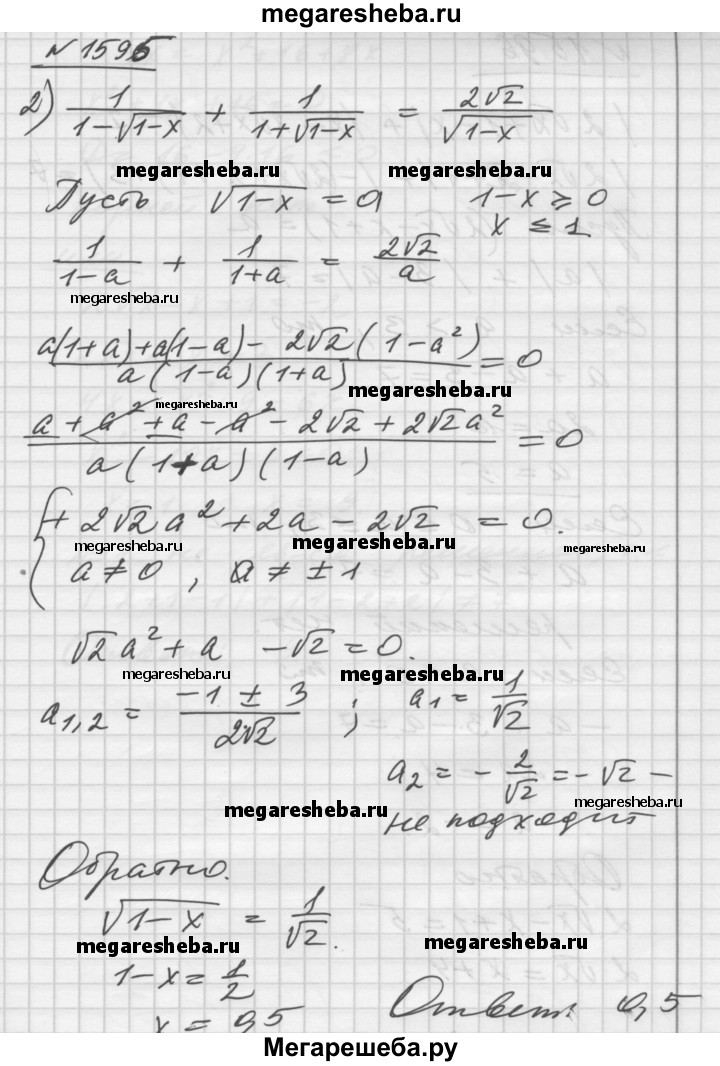 megaresheba.ru
№ 1595
2) 1/(1-√(1-x)) + 1/(1+√(1-x)) = 2√2/√(1-x)
megaresheba.ru megaresheba.ru
Пусть √(1-x) = a 1-x ⩾ 0
x ≤ 1
1/(1-a) + 1/(1+a) = 2√2/a
megaresheba.ru
(a(1+a)+a(1-a)- 2√2(1-a²))/(a(1-a)(1+a)) = 0
megaresheba.ru
megaresheba.ru
(a + a² + a - a² - 2√2 + 2√2a²)/(a(1+a)(1-a)) = 0
{ + 2√2a² + 2a - 2√2 = 0.
megaresheba.ru megaresheba.ru megaresheba.ru
a ≠ 0, a ≠ ±1
√2a² + a - √2 = 0.
megaresheba.ru megaresheba.ru
a1,2 = (-1 ± 3)/(2√2) ; a1 = 1/√2
a2 = - 2/√2 = -√2 -
megaresheba.ru megaresheba.ru
не подходит
Обратно.
√(1-x) = 1/√2.
megaresheba.ru megaresheba.ru
1-x = 1/2
x = 0,5 Ответ: 0,5
Мегарешеба.ру